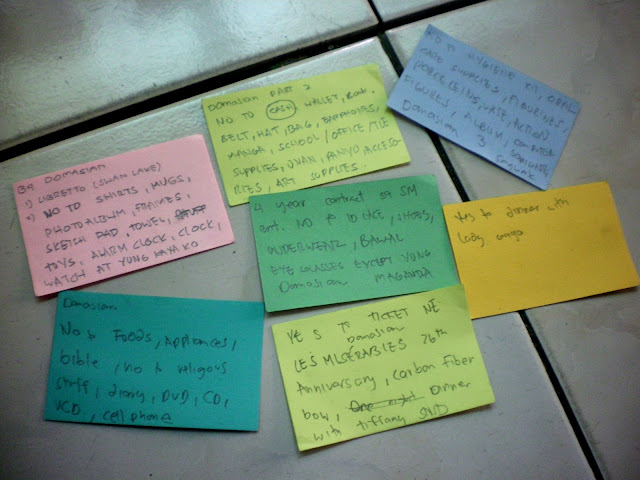 B4 DOMASIAN
1) LIBRETTO (SWAN LAKE)
2) NO TO SHIRTS, MUGS,
PHOTOALBUM, FRAMES,
SKETCH PAD, TOWEL,
TOYS, ALARM CLOCK, CLOCK,
WATCH AT YUNG KAYA KO
DOMASIAN PART 2
NO TO CASH, WALLET, BOOK,
BELT, HAT, BAG, EARPHONES,
MANGA, SCHOOL / OFFICE /
SUPPLIES, UNAN, PANYO ACCESSO-
RIES, ART SUPPLIES.
NO TO HYGIENE KIT, ORAL
CARE SUPPLIES, FIGURINES,
PORCELAINS, VASE, ACTION
FIGURES, ALBUM,
Domasian 3
4 year contract sa SM
ent. NO TO ID LACE, SHOES,
UNDERWEAR, BAWAL
EYE GLASSES EXCEPT YUNG
Domasian MAGANDA
Yes to dinner with
lady gaga
Domasian
No to Foods, Appliances,
bible, no to religous
stuff, diary, DVD, CD,
VCD, cellphone
YES TO TICKET NG
Domasian
LES MISÉRABLES 76th
Anniversary, carbon fiber
bow, One night Dinner
with tiffany SNSD